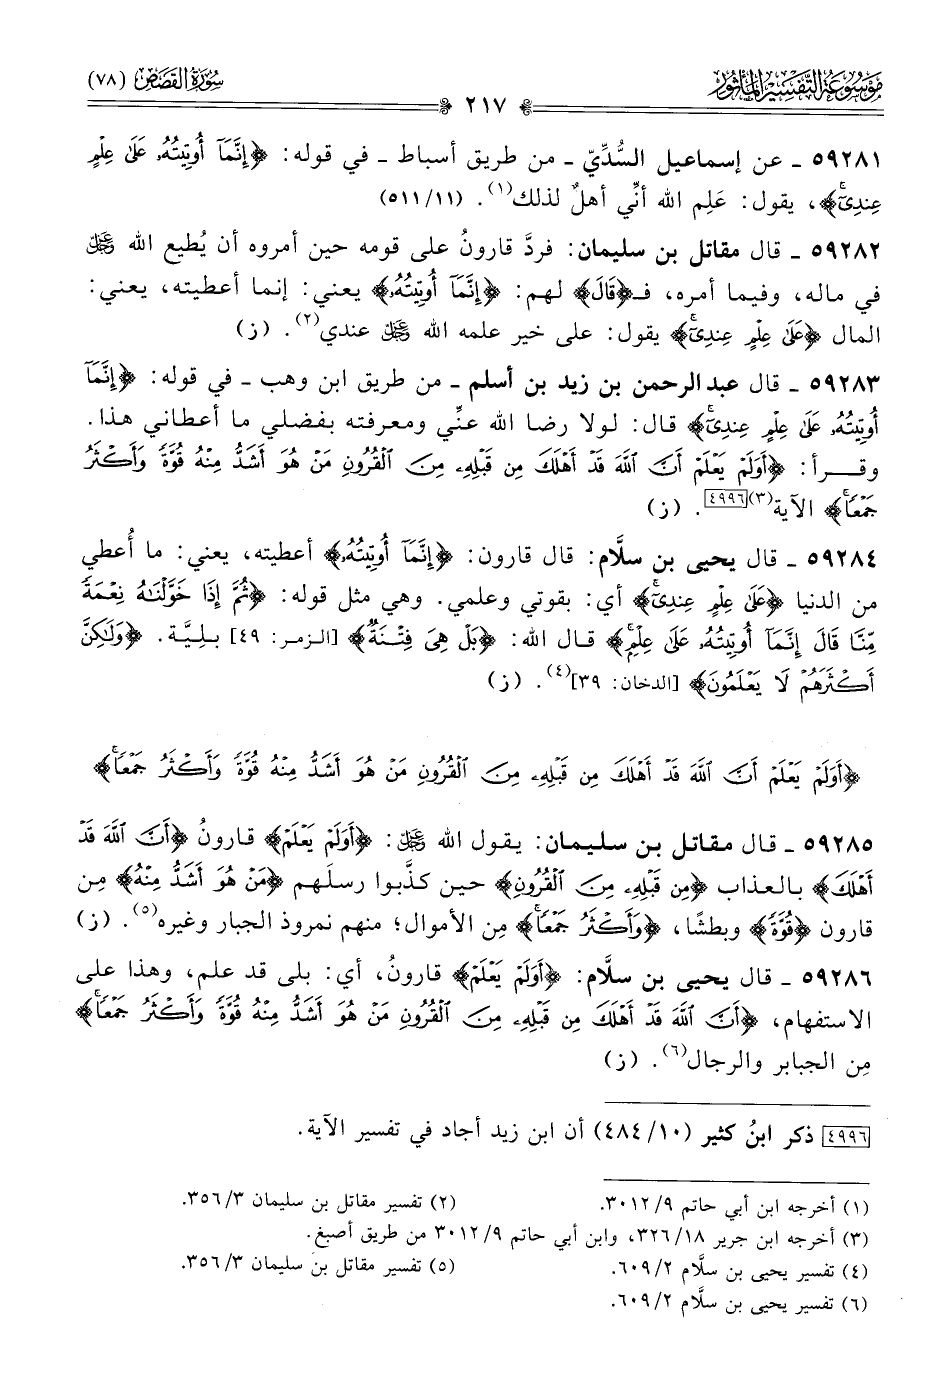 موسوعة التفسير المأثور
سورة القصص (٧٨)
٢١٧
٥٩٢٨١ ـ عن إسماعيل السُّدِّيّ ـ من طريق أسباط ـ في قوله: ﴿إِنَّمَآ أُوتِيتُهُۥ عَلَىٰ عِلْمٍ
عِندِىٓ﴾، يقول: عَلِم الله أنِّي أهلٌ لذلك(١). (٥١١/١١)
٥٩٢٨٢ ـ قال مقاتل بن سليمان: فردَّ قارونُ على قومه حين أمروه أن يُطيع الله ﷿
في ماله، وفيما أمره، فـ﴿قَالَ﴾ لهم: ﴿إِنَّمَآ أُوتِيتُهُۥ﴾ يعني: إنما أعطيته، يعني:
المال ﴿عَلَىٰ عِلْمٍ عِندِىٓ﴾ يقول: على خير علمه الله ﷿ عندي(٢). (ز)
٥٩٢٨٣ ـ قال عبد الرحمن بن زيد بن أسلم ـ من طريق ابن وهب ـ في قوله: ﴿إِنَّمَآ
أُوتِيتُهُۥ عَلَىٰ عِلْمٍ عِندِىٓ﴾ قال: لولا رضا الله عنِّي ومعرفته بفضلي ما أعطاني هذا.
وقـرأ: ﴿أَوَلَمْ يَعْلَمْ أَنَّ ٱللَّهَ قَدْ أَهْلَكَ مِن قَبْلِهِۦ مِنَ ٱلْقُرُونِ مَنْ هُوَ أَشَدُّ مِنْهُ قُوَّةً وَأَكْثَرُ
جَمْعًا﴾ الآية(٣)[٤٩٩٦]. (ز)
٥٩٢٨٤ ـ قال يحيى بن سلَّام: قال قارون: ﴿إِنَّمَآ أُوتِيتُهُۥ﴾ أعطيته، يعني: ما أُعطي
من الدنيا ﴿عَلَىٰ عِلْمٍ عِندِىٓ﴾ أي: بقوتي وعلمي. وهي مثل قوله: ﴿ثُمَّ إِذَا خَوَّلْنَٰهُ نِعْمَةً
مِّنَّا قَالَ إِنَّمَآ أُوتِيتُهُۥ عَلَىٰ عِلْمٍ﴾ قال الله: ﴿بَلْ هِىَ فِتْنَةٌ﴾ [الزمر: ٤٩] بليَّة. ﴿وَلَٰكِنَّ
أَكْثَرَهُمْ لَا يَعْلَمُونَ﴾ [الدخان: ٣٩](٤). (ز)
﴿أَوَلَمْ يَعْلَمْ أَنَّ ٱللَّهَ قَدْ أَهْلَكَ مِن قَبْلِهِۦ مِنَ ٱلْقُرُونِ مَنْ هُوَ أَشَدُّ مِنْهُ قُوَّةً وَأَكْثَرُ جَمْعًا﴾
٥٩٢٨٥ ـ قال مقاتل بن سليمان: يقول الله ﷿: ﴿أَوَلَمْ يَعْلَمْ﴾ قارونُ ﴿أَنَّ ٱللَّهَ قَدْ
أَهْلَكَ﴾ بالعذاب ﴿مِن قَبْلِهِۦ مِنَ ٱلْقُرُونِ﴾ حين كذَّبوا رسلَهم ﴿مَنْ هُوَ أَشَدُّ مِنْهُ﴾ مِن
قارون ﴿قُوَّةً﴾ وبطشًا، ﴿وَأَكْثَرُ جَمْعًا﴾ مِن الأموال؛ منهم نمروذ الجبار وغيره(٥). (ز)
٥٩٢٨٦ ـ قال يحيى بن سلَّام: ﴿أَوَلَمْ يَعْلَمْ﴾ قارونُ، أي: بلى قد علم، وهذا على
الاستفهام، ﴿أَنَّ ٱللَّهَ قَدْ أَهْلَكَ مِن قَبْلِهِۦ مِنَ ٱلْقُرُونِ مَنْ هُوَ أَشَدُّ مِنْهُ قُوَّةً وَأَكْثَرُ جَمْعًا﴾
مِن الجبابر والرجال(٦). (ز)
[٤٩٩٦] ذكر ابنُ كثير (٤٨٤/١٠) أن ابن زيد أجاد في تفسير الآية.
(١) أخرجه ابن أبي حاتم ٣٠١٢/٩. (٢) تفسير مقاتل بن سليمان ٣٥٦/٣.
(٣) أخرجه ابن جرير ٣٢٦/١٨، وابن أبي حاتم ٣٠١٢/٩ من طريق أصبغ.
(٤) تفسير يحيى بن سلَّام ٦٠٩/٢. (٥) تفسير مقاتل بن سليمان ٣٥٦/٣.
(٦) تفسير يحيى بن سلَّام ٦٠٩/٢.